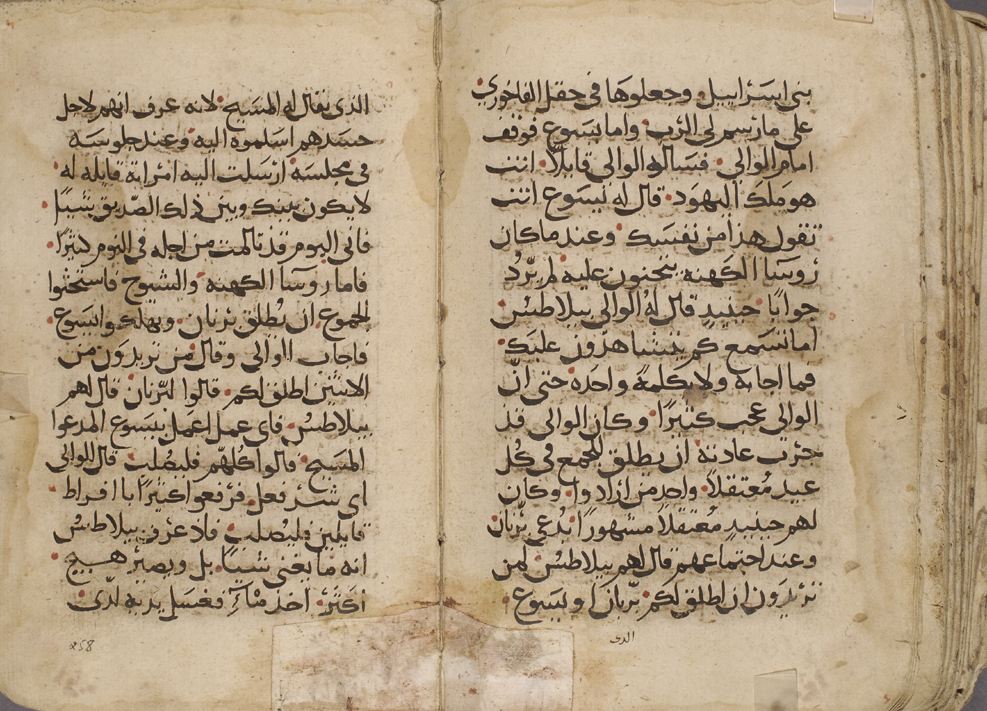 بني اسرايل وجعلوها في حقل الفاخوري
على مارسم لي الرب واما يسوع فوقف
امام الوالي فساله الوالي قايلاً انت
هو ملك اليهود قال له يسوع انت
تقول هذا من نفسك وعند ما كان
روسا الكهنه ينحنون عليه لم يرد
جوابًا حينيدٍ قال له الوالي بيلاطس
اما تسمع كم يشاهدون عليك
فما اجابه ولا بكلمة واحده حتى ان
الوالي عجب كثيرًا وكان الوالي قد
جرت عادته ان يطلق للجمع في كل
عيد معتقلاً واحد من ارادوا وكان
لهم حينيدٍ معتقلاً مشهورًا يدعى بربان
وعند اجتماعهم قال لهم بيلاطس لمن
تريدون ان اطلق لكم بربان او يسوع
الدى
الدى يقال له المسيح لانه عرف انهم لاجل
حسدهم اسلموه اليه وعند جلوسه
في مجلسه ارسلت اليه امراته قايله له
لا يكون بينك وبين ذلك الصديق شيئًا
فاني اليوم قد تالمت من اجله في النوم كثيرًا
فاما روسا الكهنه والشيوخ فاستحثوا
الجموع ان يطلق بربان ويهلكوا يسوع
فاجاب الوالي وقال من تريدون من
الاثنين اطلق لكم قالوا لبربان قال لهم
بيلاطس فاي عمل اعمل بيسوع المدعوا
المسيح قالوا كلهم فليصلب قال الوالي
اى شر فعل فرفعوا كثيرًا بافراط
قايلين فليصلب فلما عرف بيلاطس
انه ما يغني شيئًا بل ويصير هيج
اكثر اخذ ماء وغسل يديه لدى
258